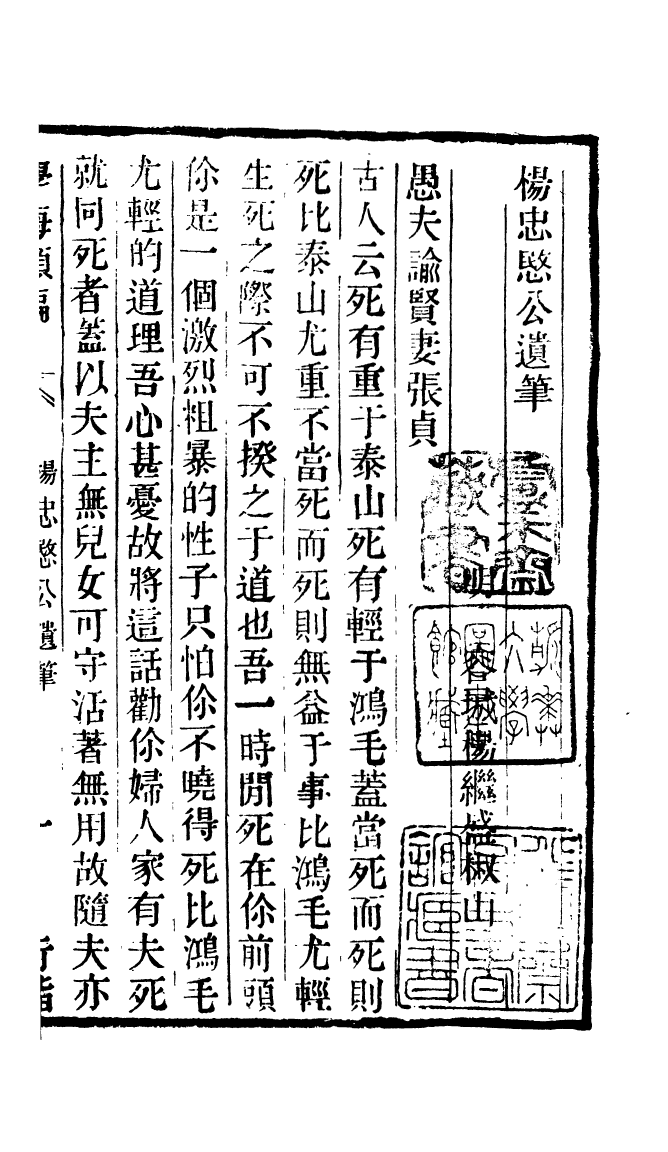 楊忠愍公遺筆
明　容城楊繼盛椒山
愚夫諭賢妻張貞
古人云死有重于泰山死有輕于鴻毛蓋當死而死則
死比泰山尤重不當死而死則無益于事比鴻毛尤輕
生死之際不可不揆之于道也吾一時間死在你前頭
你是一個激烈粗暴的性子只怕你不曉得死比鴻毛
尤輕的道理吾心甚憂故將這話勸你婦人家有夫死
就同死者蓋以夫主無兒女可守活著無用故隨夫亦
學海類編
楊忠愍公遺筆
一
行詣